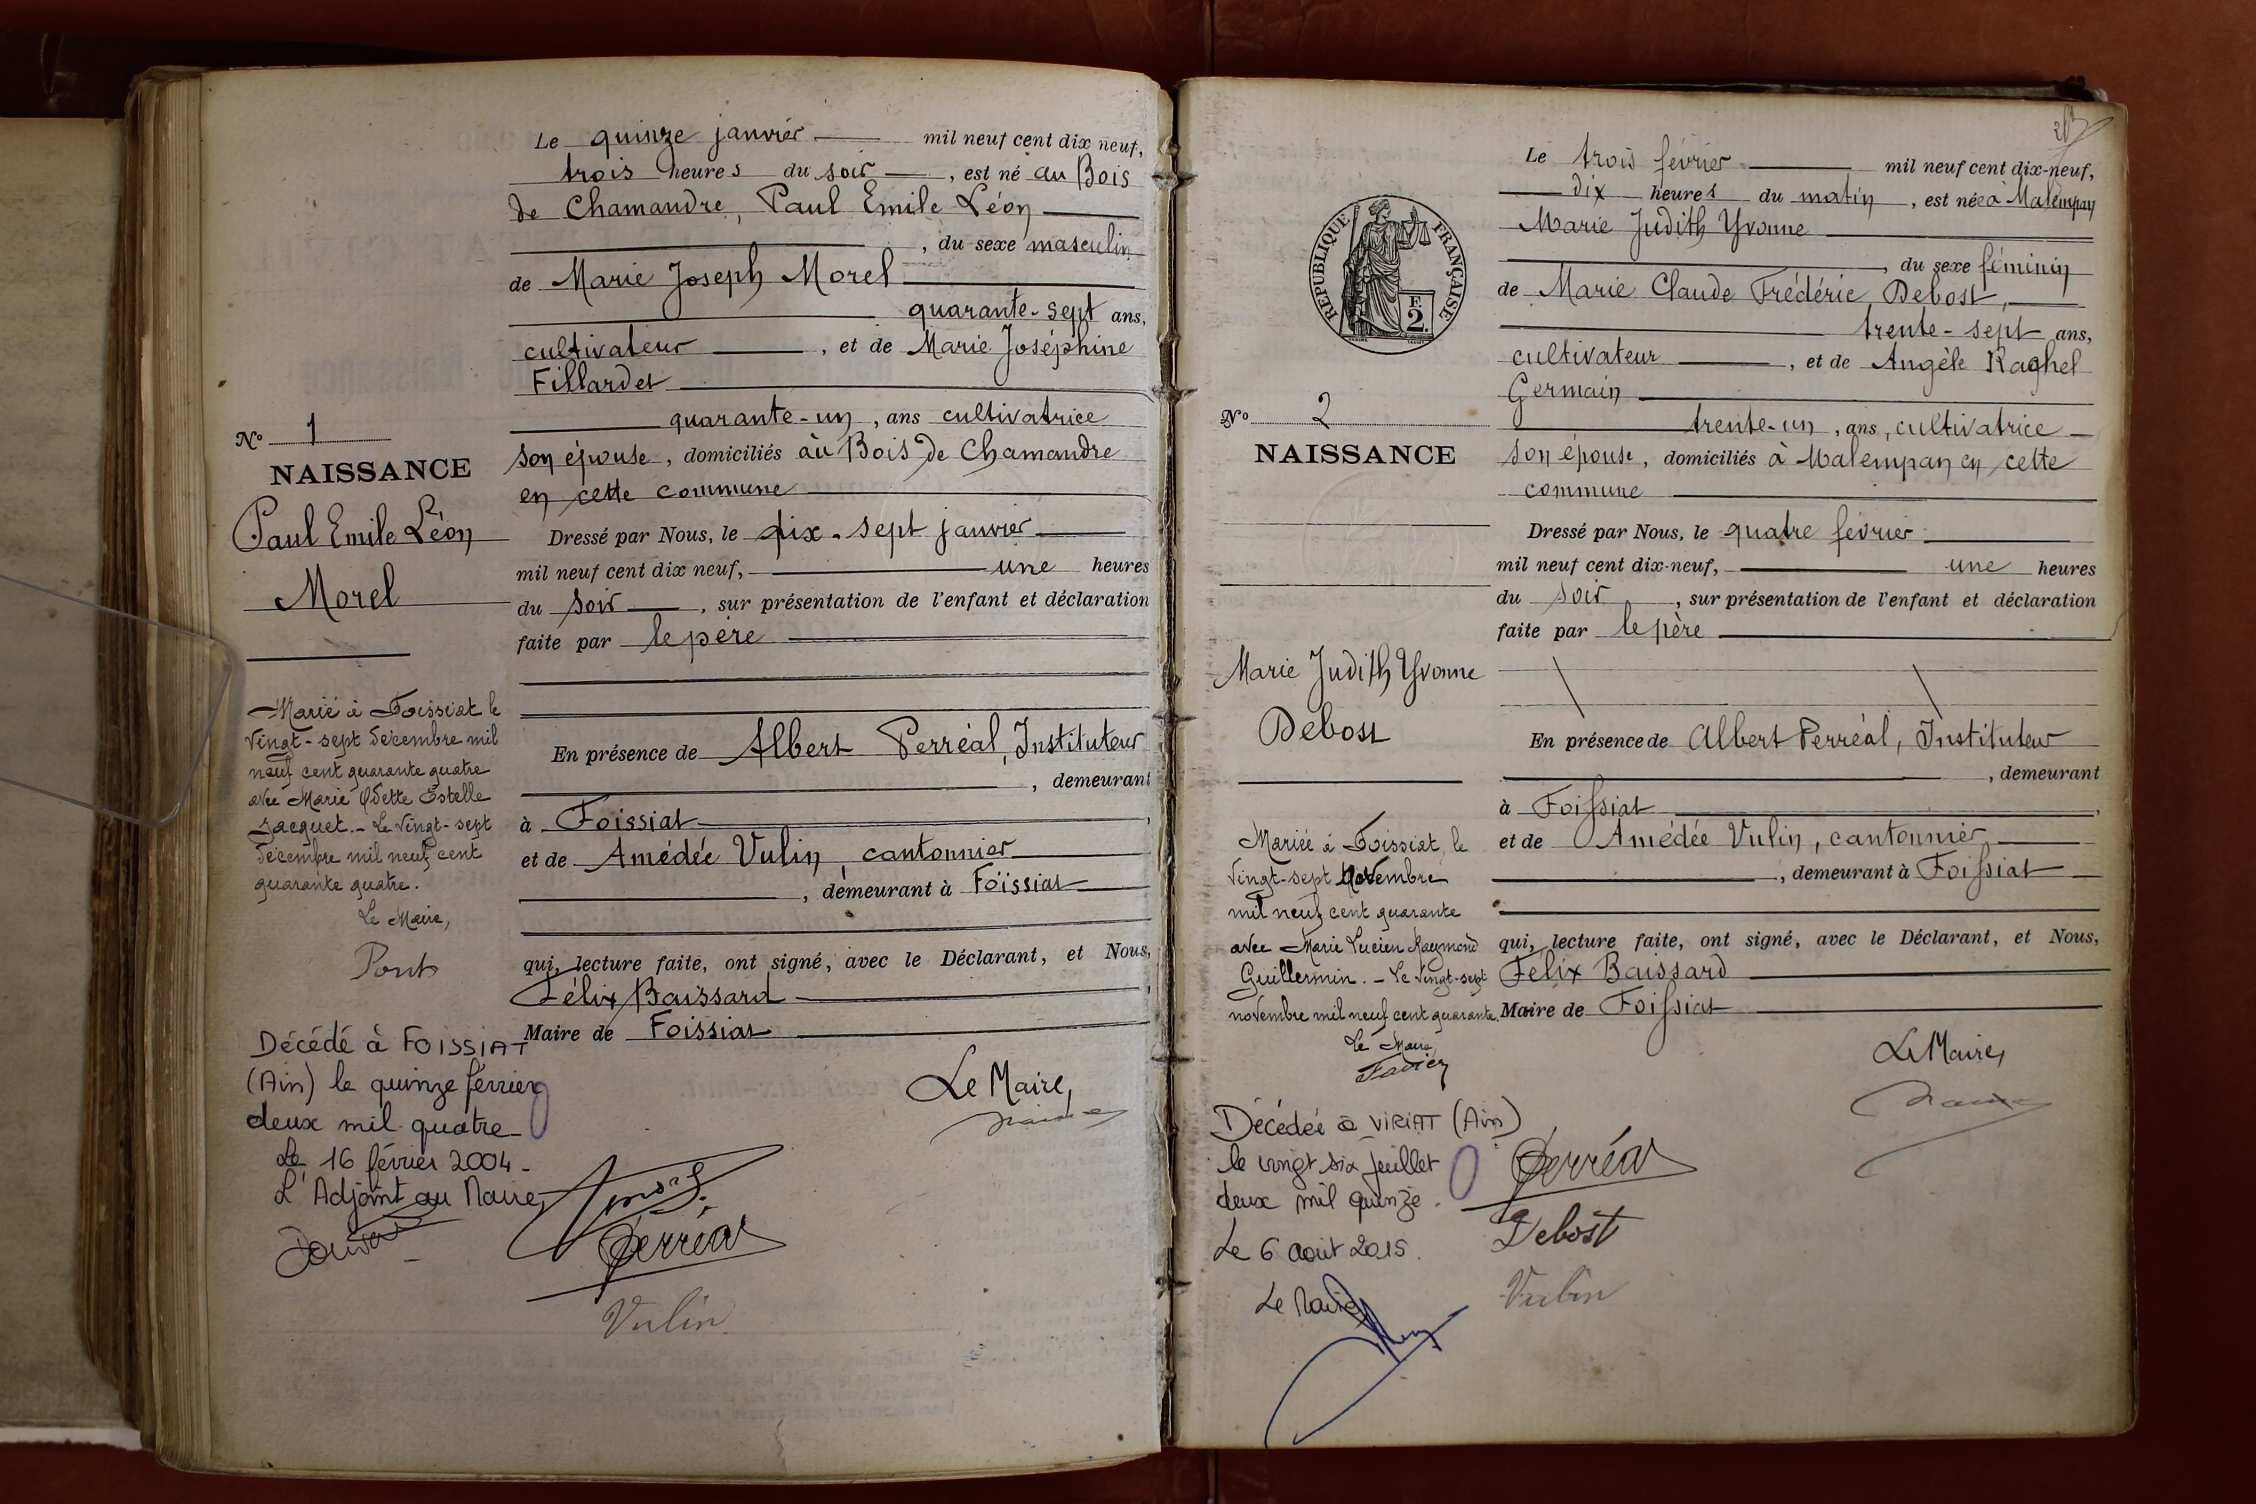 Le quinze janvier mil neuf cent dix neuf,
trois heures du soir, est né au Bois
de Chamandre, Paul Emile Léon
, du sexe masculin
de Marie Joseph Morel
quarante-sept ans,
cultivateur, et de Marie Joséphine
Fillardet
quarante-un, ans cultivatrice
son épouse, domiciliés au Bois de Chamandre
en cette commune
Dressé par Nous, le dix-sept janvier
mil neuf cent dix neuf, une heures
du soir, sur présentation de l'enfant et déclaration
faite par le père
En présence de Albert Perréal, Instituteur
, demeurant
à Foissiat
et de Amédée Vulin, cantonnier
, demeurant à Foissiat
qui, lecture faite, ont signé, avec le Déclarant, et Nous,
Félix Baissard,
Maire de Foissiat
Le Maire,
Perréal
Vulin
No 1
NAISSANCE
Paul Emile Léon
Morel
Marié à Foissiat le
vingt-sept décembre mil
neuf cent quarante quatre
avec Marie Odette Estelle
Jacquet.- Le vingt-sept
décembre mil neuf cent
quarante quatre.
Le Maire,
Décédé à FOISSIAT
(Ain) le quinze février
deux mil quatre-
Le 16 février 2004-
L'Adjoint au Maire,
Le trois février mil neuf cent dix-neuf,
dix heures du matin, est née à Malempan
Marie Judith Yvonne
, du sexe féminin
de Marie Claude Frédéric Debost,
trente-sept ans,
cultivateur, et de Angèle Raghel
Germain
trente-un, ans, cultivatrice
son épouse, domiciliés à Malempan en cette
commune
Dressé par Nous, le quatre février
mil neuf cent dix-neuf, une heures
du soir, sur présentation de l'enfant et déclaration
faite par le père
En présence de Albert Perréal, Instituteur
, demeurant
à Foissiat,
et de Amédée Vulin, cantonnier
, demeurant à Foissiat
qui, lecture faite, ont signé, avec le Déclarant, et Nous,
Félix Baissard
Maire de Foissiat
Le Maire,
Perréal
Debost
Vulin
RÉPUBLIQUE FRANÇAISE
F.
2.
No 2
NAISSANCE
Marie Judith Yvonne
Debost
Mariée à Foissiat, le
vingt-sept novembre
mil neuf cent quarante
avec Marie Lucien Raymond
Guillermin.- Le vingt-sept
novembre mil neuf cent quarante.
Le Maire,
Décédée à VIRIAT (Ain)
le vingt six juillet
deux mil quinze.
Le 6 août 2015.
Le Maire